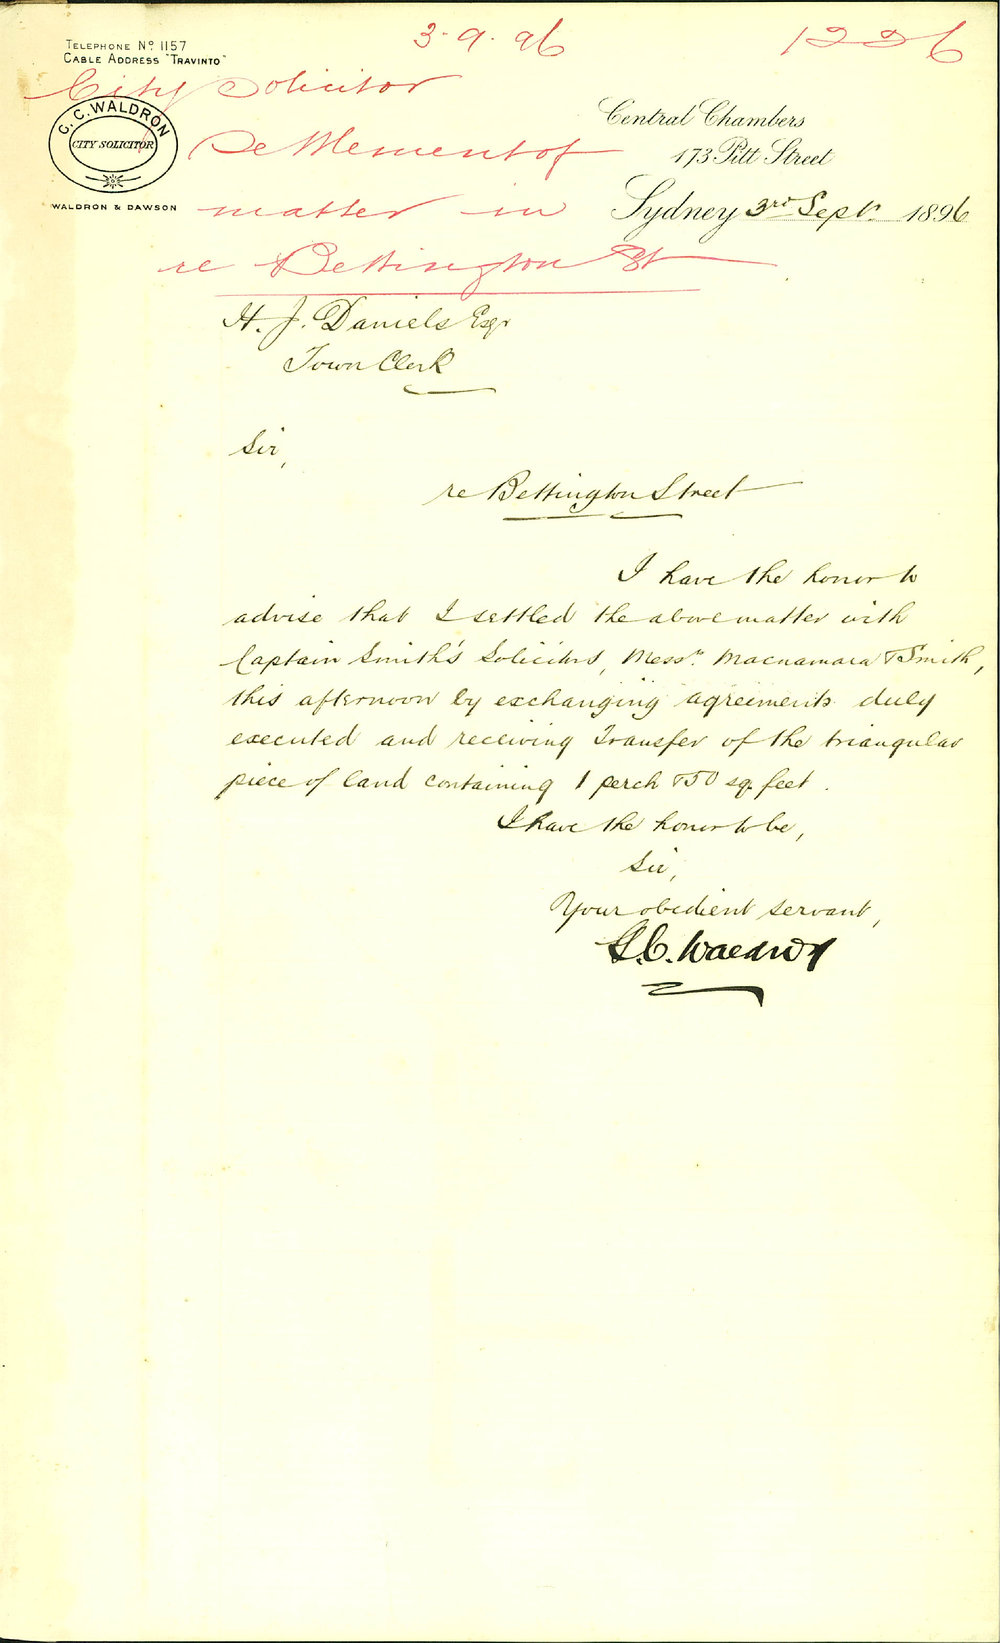 3.9.96
1226
TELEPHONE No 1157
CABLE ADDRESS "TRAVINTO"
City Solicitor
G. C. WALDRON
CITY SOLICITOR
WALDRON & DAWSON
Settlement of
matter in
re Bettington St
Central Chambers
173 Pitt Street
Sydney 3rd Sept. 1896
H. J. Daniels Esqr
Town Clerk
Sir,
re Bettington Street
I have the honor to
advise that I settled the above matter with
Captain Smith's Solicitors, Messrs. Macnamara & Smith,
this afternoon by exchanging agreements duly
executed and receiving Transfer of the triangular
piece of land containing 1 perch & 50 sq. feet.
I have the honor to be,
Sir,
Your obedient servant,
G. C. Waldron